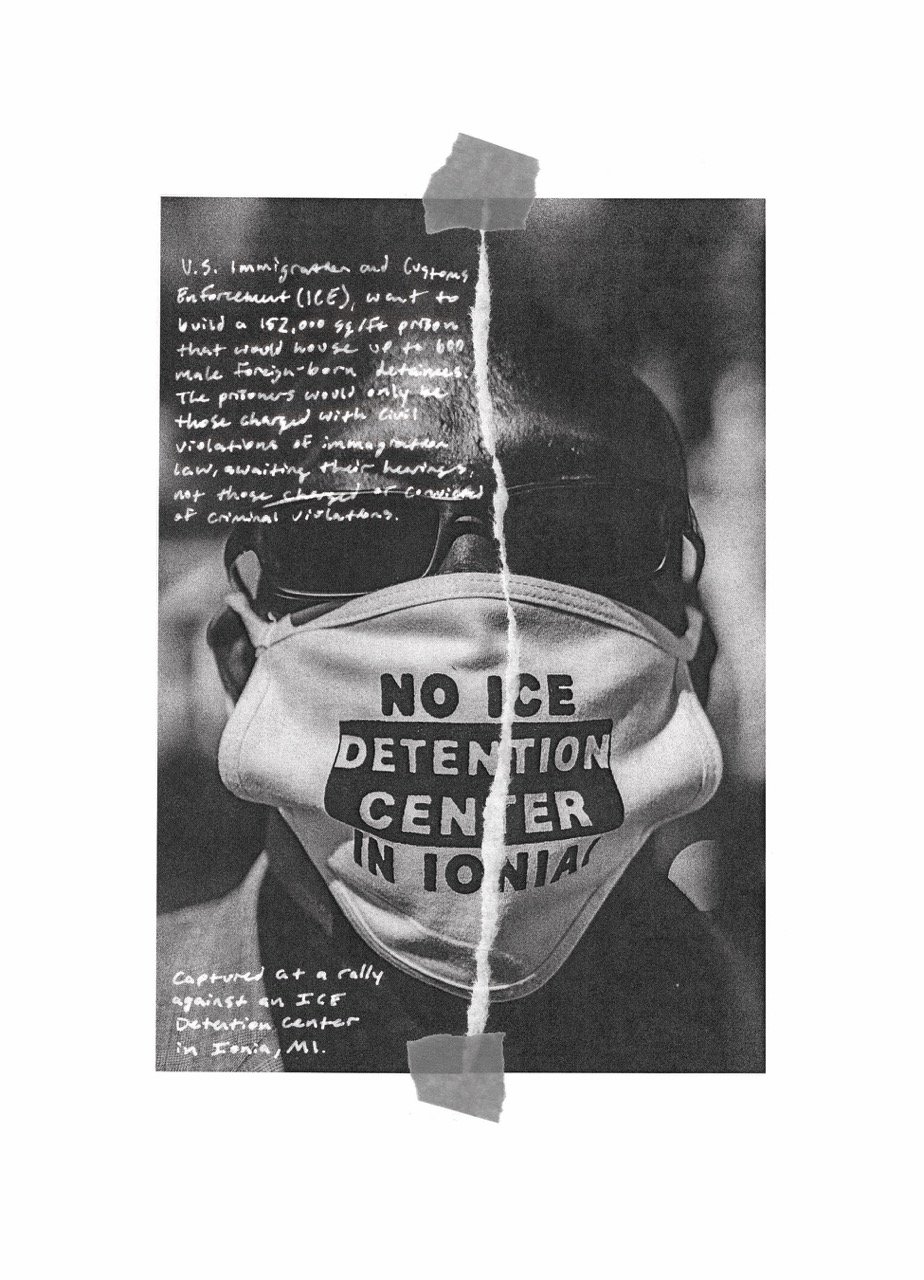 U.S. Immigration and Customs
Enforcement (ICE), want to
build a 152,000 sq/ft prison
that would house up to 600
male foreign-born detainees.
The prisoners would only be
those charged with civil
violations of immagration
law, awaiting their hearings,
not those charged or convicted
of criminal violations.
NO ICE
DETENTION
CENTER
IN IONIA!
Captured at a rally
against an ICE
Detention center
in Ionia, MI.